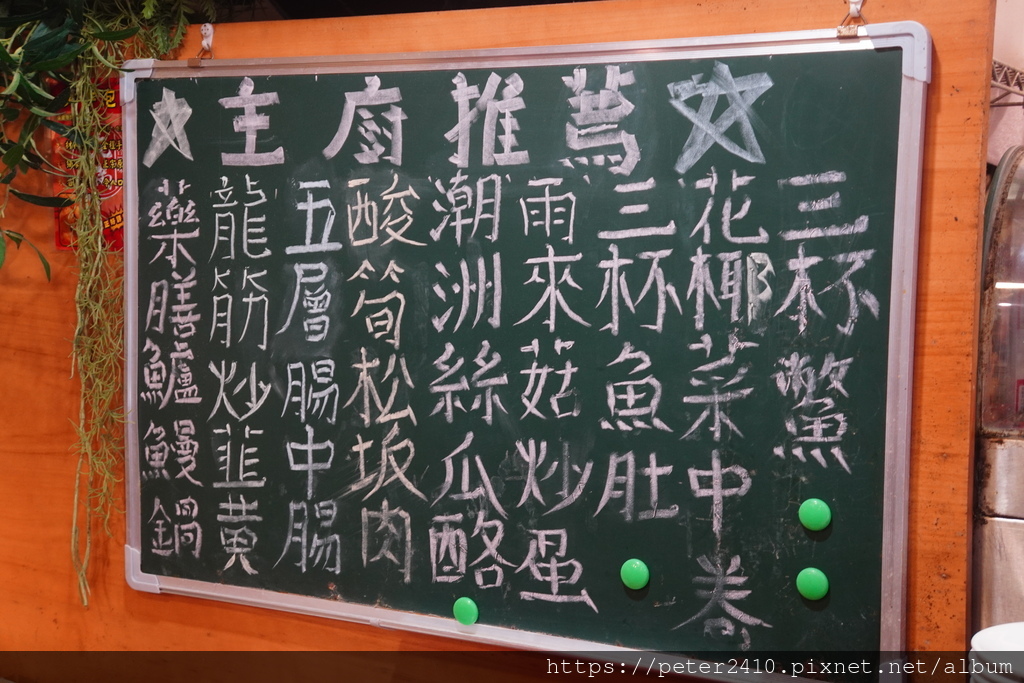 ☆主廚推薦☆
三杯鱉
花椰菜中卷
三杯魚肚
雨來菇炒蛋
潮洲絲瓜酪
酸筍松坂肉
五層腸中腸
龍筋炒韮黄
藥膳鱸鰻鍋
https://peter2410.pixnet.net/album